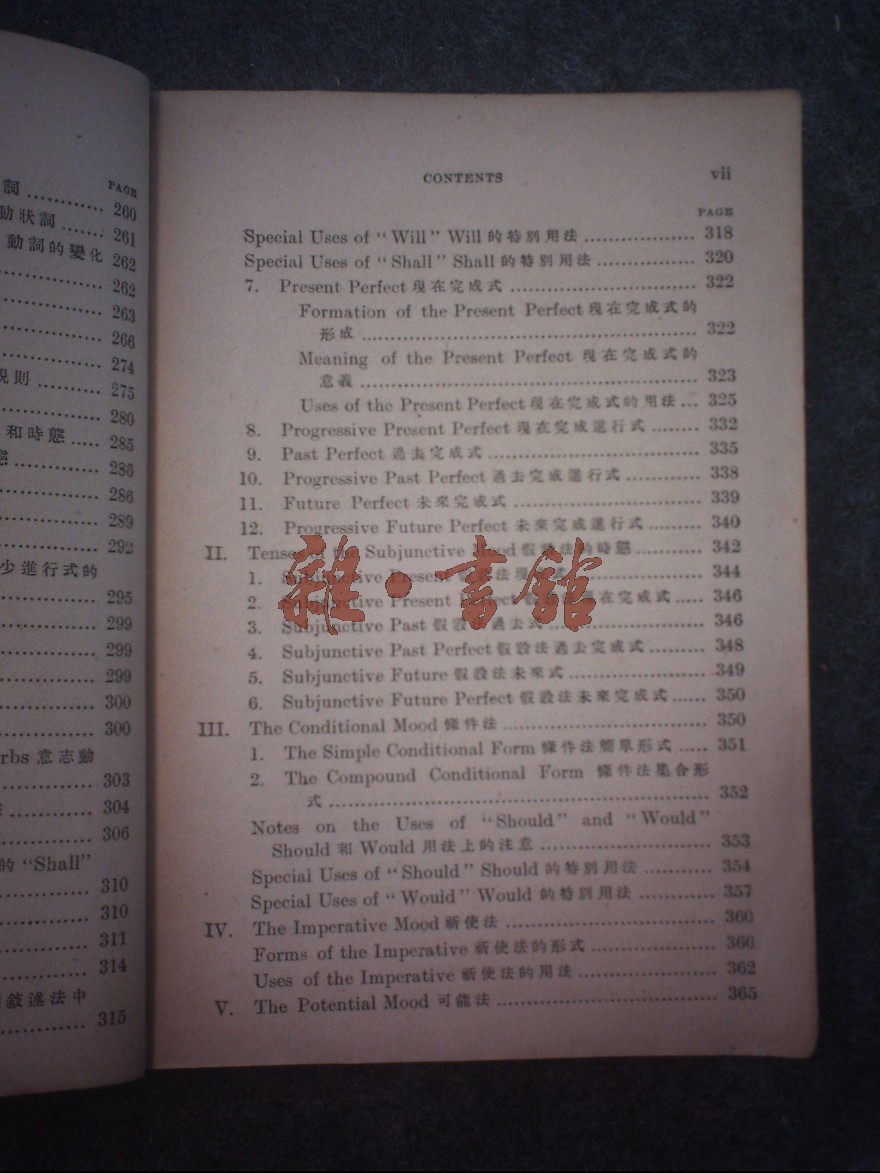 PAGE
詞 ............ 260
動狀詞 ....... 261
動詞的變化 262
................ 262
................ 263
................ 266
................ 274
規則 ......... 275
................ 280
和時態 ..... 285
態 ............ 286
................ 286
................ 289
................ 292
少進行式的
................ 295
................ 299
................ 299
................ 299
................ 300
................ 300
rbs 意志動
................ 303
................ 304
................ 306
的 "Shall"
................ 310
................ 310
................ 311
................ 314
敘述法中
................ 315
CONTENTS vii
PAGE
Special Uses of "Will" Will 的特別用法 .................. 318
Special Uses of "Shall" Shall 的特別用法 ................. 320
7. Present Perfect 現在完成式 .............................. 322
Formation of the Present Perfect 現在完成式的
形成 ...................................................... 322
Meaning of the Present Perfect 現在完成式的
意義 ...................................................... 323
Uses of the Present Perfect 現在完成式的用法 ... 325
8. Progressive Present Perfect 現在完成進行式 ........ 332
9. Past Perfect 過去完成式 .................................. 335
10. Progressive Past Perfect 過去完成進行式 ............ 338
11. Future Perfect 未來完成式 ............................... 339
12. Progressive Future Perfect 未來完成進行式 ......... 340
II. Tenses of the Subjunctive Mood 假設法的時態 ............. 342
1. Subjunctive Present 假設法現在式 ..................... 344
2. Subjunctive Present Perfect 假設法現在完成式 ..... 346
3. Subjunctive Past 假設法過去式 ......................... 346
4. Subjunctive Past Perfect 假設法過去完成式 ......... 348
5. Subjunctive Future 假設法未來式 ...................... 349
6. Subjunctive Future Perfect 假設法未來完成式 ...... 350
III. The Conditional Mood 條件法 ................................ 350
1. The Simple Conditional Form 條件法簡單形式 ..... 351
2. The Compound Conditional Form 條件法集合形
式 ............................................................. 352
Notes on the Uses of "Should" and "Would"
Should 和 Would 用法上的注意 ......................... 353
Special Uses of "Should" Should 的特別用法 ........... 354
Special Uses of "Would" Would 的特別用法 ............ 357
IV. The Imperative Mood 祈使法 ................................ 360
Forms of the Imperative 祈使法的形式 .................. 360
Uses of the Imperative 祈使法的用法 .................... 362
V. The Potential Mood 可能法 ................................... 365
雜·書館